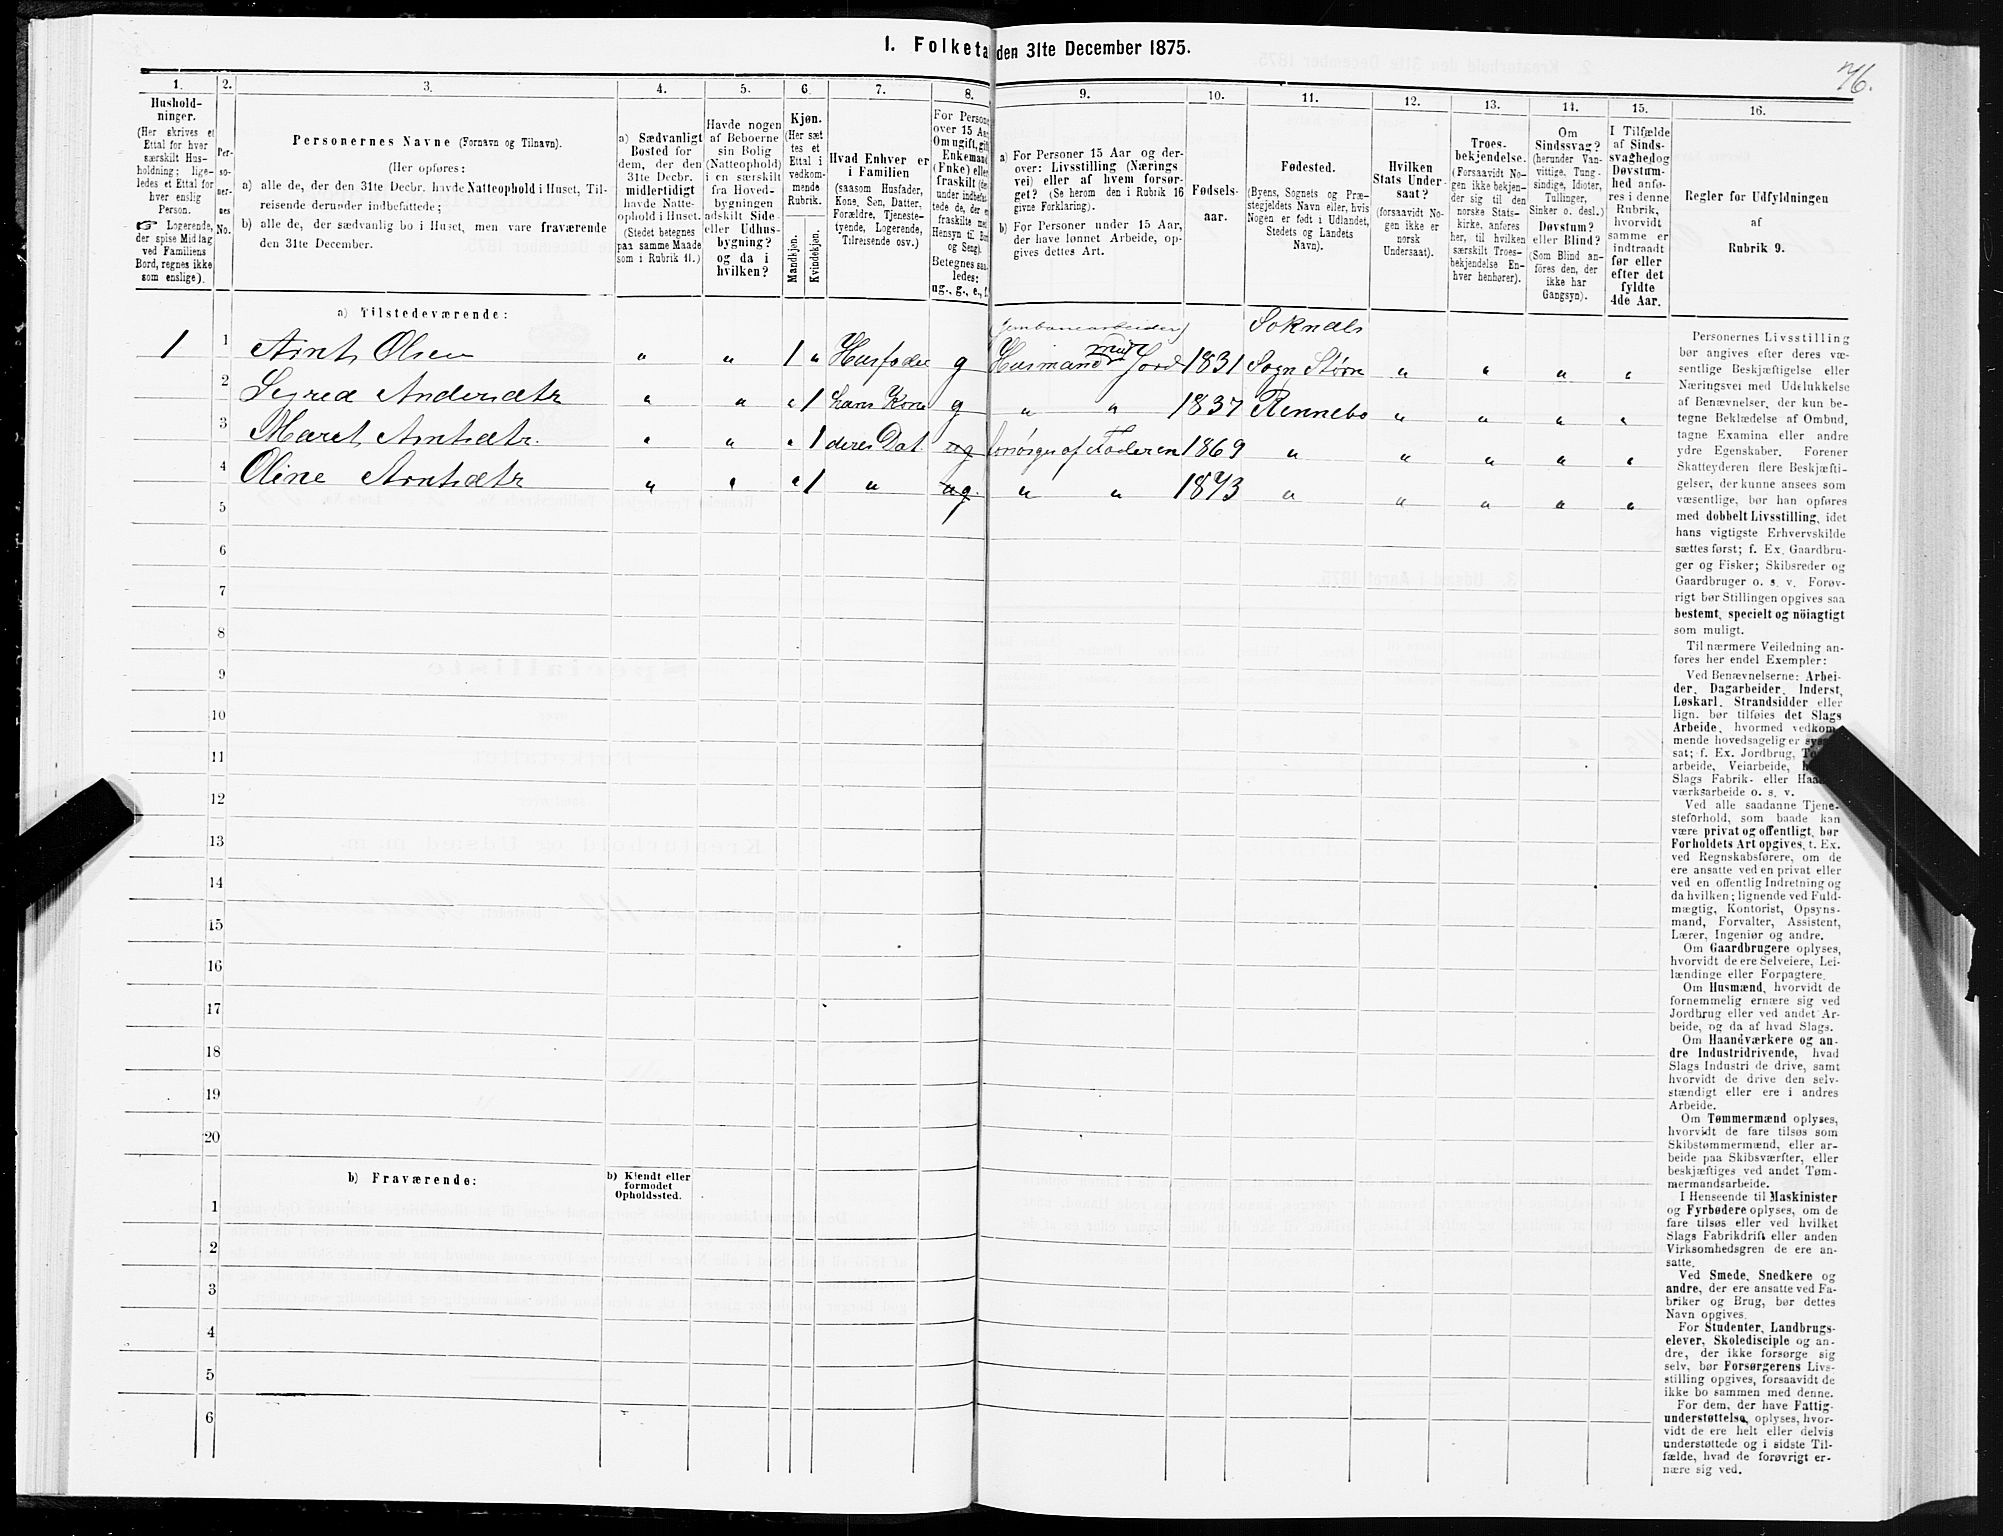 I. Folketa den 31te December 1875.
76.
1.
2.
3.
4.
5.
6.
7.
8.
9.
10.
11.
12.
13.
14.
15.
16.
Hushold-
ninger.
(Her skrives et
Ettal for hver
særskilt Hus-
holdning; lige-
ledes et Ettal for
hver enslig
Person.
☞ Logerende,
der spise Middag
ved Familiens
Bord, regnes ikke
som enslige).
Per-
so-
ner-
nes
No.
Personernes Navne (Fornavn og Tilnavn).
(Her opføres:
a) alle de, der den 31te Decbr. havde Natteophold i Huset, Til-
reisende derunder indbefattede;
b) alle de, der sædvanlig bo i Huset, men vare fraværende
den 31te December.
a) Sædvanligt
Bosted for
dem, der den
31te Decbr.
midlertidigt
havde Natte-
ophold i Huset.
(Stedet betegnes
paa samme Maade
som i Rubrik 11.)
Havde nogen
af Beboerne
sin Bolig
(Natteophold)
i en særskilt
fra Hoved-
bygningen
adskilt Side-
eller Udhus-
bygning?
og da i
hvilken?
Kjøn.
(Her sæt-
tes et
Ettal i
vedkom-
mende
Rubrik.
Mandkjøn.
Kvindekjøn.
Hvad Enhver er
i Familien
(saasom Husfader,
Kone, Søn, Datter,
Forældre, Tjeneste-
tyende, Logerende,
Tilreisende osv.)
For Person
over 15 Aar
Om ugift, gift
Enkemand
(Enke) elle
fraskilt (de
under indbefat
tede de, der er
fraskilte med
Hensyn til Bo
og Seng).
Betegnes saa-
ledes:
ug., g., e., f.
a) For Personer 15 Aar og der-
over: Livsstilling (Nærings
vei) eller af hvem forsør-
get? (Se herom den i Rubrik 16
givne Forklaring).
b) For Personer under 15 Aar,
der have lønnet Arbeide, op-
gives dettes Art.
Fødsels-
aar.
Fødested.
(Byens, Sognets og Præ-
stegjeldets Navn eller, hvis
Nogen er født i Udlandet,
Stedets og Landets
Navn).
Hvilken
Stats Under-
saat?
(forsaavidt No-
gen ikke er
norsk
Undersaat).
Troes-
bekjendelse.
(Forsaavidt No-
gen ikke bekjen-
der sig til den
norske Stats-
kirke, anføres
her, til hvilken
særskilt Troes-
bekjendelse En-
hver henhører).
Om
Sindssvag?
(herunder Van-
vittige, Tung-
sindige, Idioter,
Tullinger,
Sinker o. desl.)
Døvstum?
eller Blind?
(Som Blind an-
føres den, der
ikke har
Gangsyn).
I Tilfælde
af Sinds-
svaghed og
Døvstum-
hed anfø-
res i denne
Rubrik,
hvorvidt
samme er
indtraadt
før eller
efter det
fyldte
4de Aar.
Regler for Udfyldningen
af
Rubrik 9.
a) Tilstedeværende:
1 1 Arnt Olsen " " 1 " Husfader g (Jernbanearbeider) Husmand med Jord 1831 Soknæds Sogn Støren " " " "
2 Segred Andersdtr " " " 1 hans Kone g " " 1837 Rennebo " " " "
3 Maret Arntsdtr. " " " 1 deres Dat ug forsørges af Faderen 1869 " " " " "
4 Oline Arntsdtr " " " 1 " ug. " " 1873 " " " " "
5
6
7
8
9
10
11
12
13
14
15
16
17
18
19
20
b) Fraværende:
b) Kjendt eller
formodet
Opholdssted.
1
2
3
4
5
6
Personernes Livsstilling
bør angives efter deres væ-
sentlige Beskjæftigelse eller
Næringsvei med Udelukkelse
af Benævnelser, der kun be-
tegne Beklædelse af Ombud,
tagne Examina eller andre
ydre Egenskaber. Forener
Skatteyderen flere Beskjæfti-
gelser, der kunne ansees som
væsentlige, bør han opføres
med dobbelt Livsstilling, idet
hans vigtigste Erhvervskilde
sættes først; f. Ex. Gaardbru-
ger og Fisker; Skibsreder og
Gaardbruger o. s. v. Forøv-
rigt bør Stillingen opgives saa
bestemt, specielt og nöiagtigt
som muligt.
Til nærmere Veiledning an-
føres her endel Exempler:
Ved Benævnelserne: Arbei-
der, Dagarbeider, Inderst,
Løskarl, Strandsidder eller
lign. bør tilføies det Slags
Arbeide, hvormed vedkom-
mende hovedsagelig er
sat; f. Ex. Jordbrug,
arbeide, Veiarbeide,
Slags Fabrik- eller
værksarbeide o. s. v.
Ved alle saadanne Tjene-
steforhold, som baade kan
være privat og offentligt, bør
Forholdets Art opgives, t. Ex.
ved Regnskabsførere, om de
ere ansatte ved en privat eller
ved en offentlig Indretning og
da hvilken; lignende ved Fuld-
mægtig, Kontorist, Opsyns-
mand, Forvalter, Assistent,
Lærer, Ingeniør og andre.
Om Gaardbrugere oplyses,
hvorvidt de ere Selveiere, Lei-
lændinge eller Forpagtere.
Om Husmænd, hvorvidt de
fornemmelig ernære sig ved
Jordbrug eller ved andet Ar-
beide, og da af hvad Slags.
Om Haandværkere og an-
dre Industridrivende, hvad
Slags Industri de drive, samt
hvorvidt de drive den selv-
stændigt eller ere i andres
Arbeide.
Om Tømmermænd oplyses,
hvorvidt de fare tilsøs som
Skibstømmermænd, eller ar-
beide paa Skibsværfter, eller
beskjæftiges ved andet Tøm-
mermandsarbeide.
I Henseende til Maskinister
og Fyrbødere oplyses, om de
fare tilsøs eller ved hvilket
Slags Fabrikdrift eller anden
Virksomhedsgren de ere an-
satte.
Ved Smede, Snedkere og
andre, der ere ansatte ved Fa-
briker og Brug, bør dettes
Navn opgives.
For Studenter, Landbrugs-
elever, Skoledisciple og an-
dre, der ikke forsørge sig
selv, bør Forsørgerens Livs-
stilling opgives, forsaavidt de
ikke bo sammen med denne.
For dem, der have Fattig-
understøttelse, oplyses, hvor-
vidt de ere helt eller delvis
understøttede og i sidste Til-
fælde, hvad de forøvrigt er-
nære sig ved.